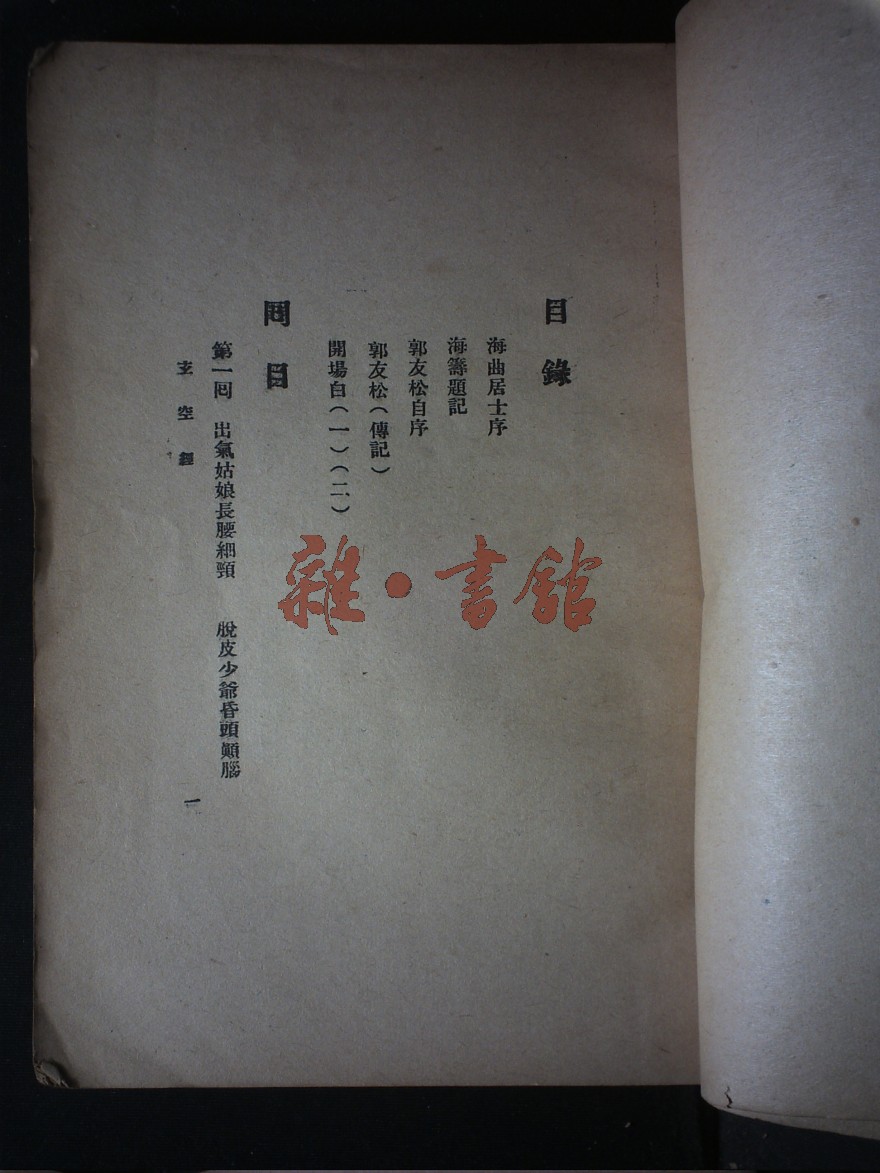 目錄
海曲居士序
海籌題記
郭友松自序
郭友松(傳記)
開場白(一)(二)
囘目
第一囘 出氣姑娘長腰細頸 脫皮少爺昏頭顛腦
玄空經 一
雜·書館